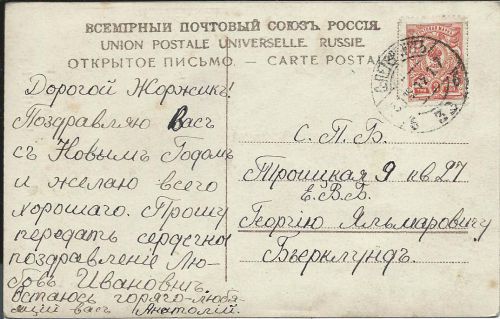 ВСЕМІРНЫЙ ПОЧТОВЫЙ СОЮЗЪ. РОССІЯ.
UNION POSTALE UNIVERSELLE. RUSSIE.
ОТКРЫТОЕ ПИСЬМО. — CARTE POSTALE
Дорогой Жоржик!
Поздравляю Васъ
съ Новымъ Годомъ
и желаю всего
хорошаго. Прошу
передать сердечное
поздравленіе Лю-
бовъ Ивановнѣ.
Остаюсь горяго-любя-
щій васъ Анатолій.
С.П.Б.
Троицкая 9 кв 27
Е.В.Б.
Георгію Яльмаровичу
Бьерклундъ.